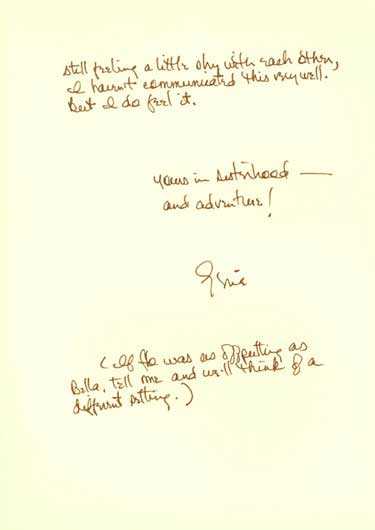 still feeling a little shy with each other,
I haven't communicated this very well.
But I do feel it.
Yours in sisterhood —
and adventure!
(If Flo was as offputting as
Bella, tell me and we'll think of a
different setting.)